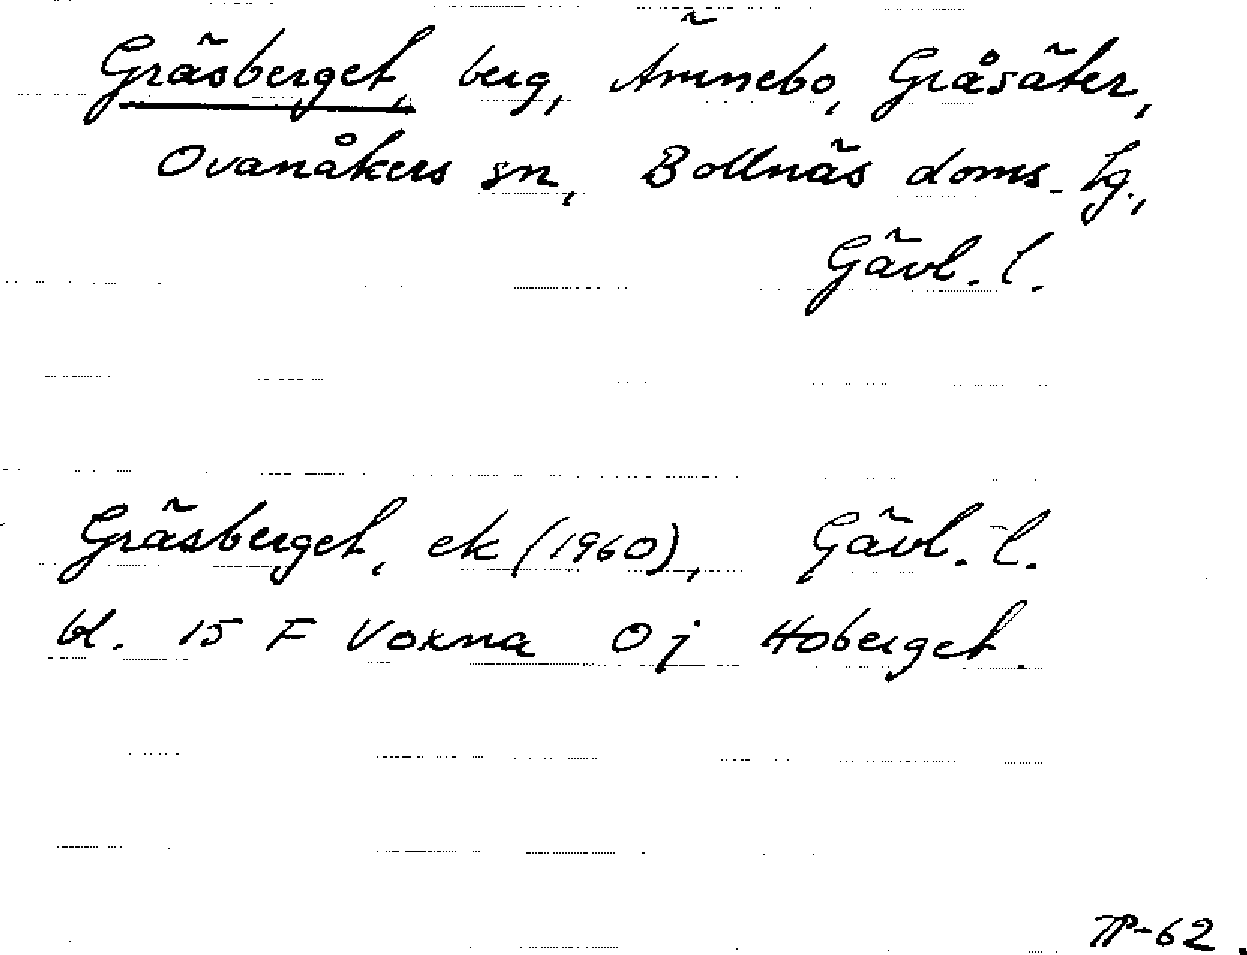 Gräsberget, berg, Ämnebo, Gråsäter,
Ovanåkers sn, Bollnäs doms. hg.,
Gävl. l.
Gräsberget, ek (1960), Gävl. l.
bl. 15 F Voxna 0 j Hoberget.
TP-62.